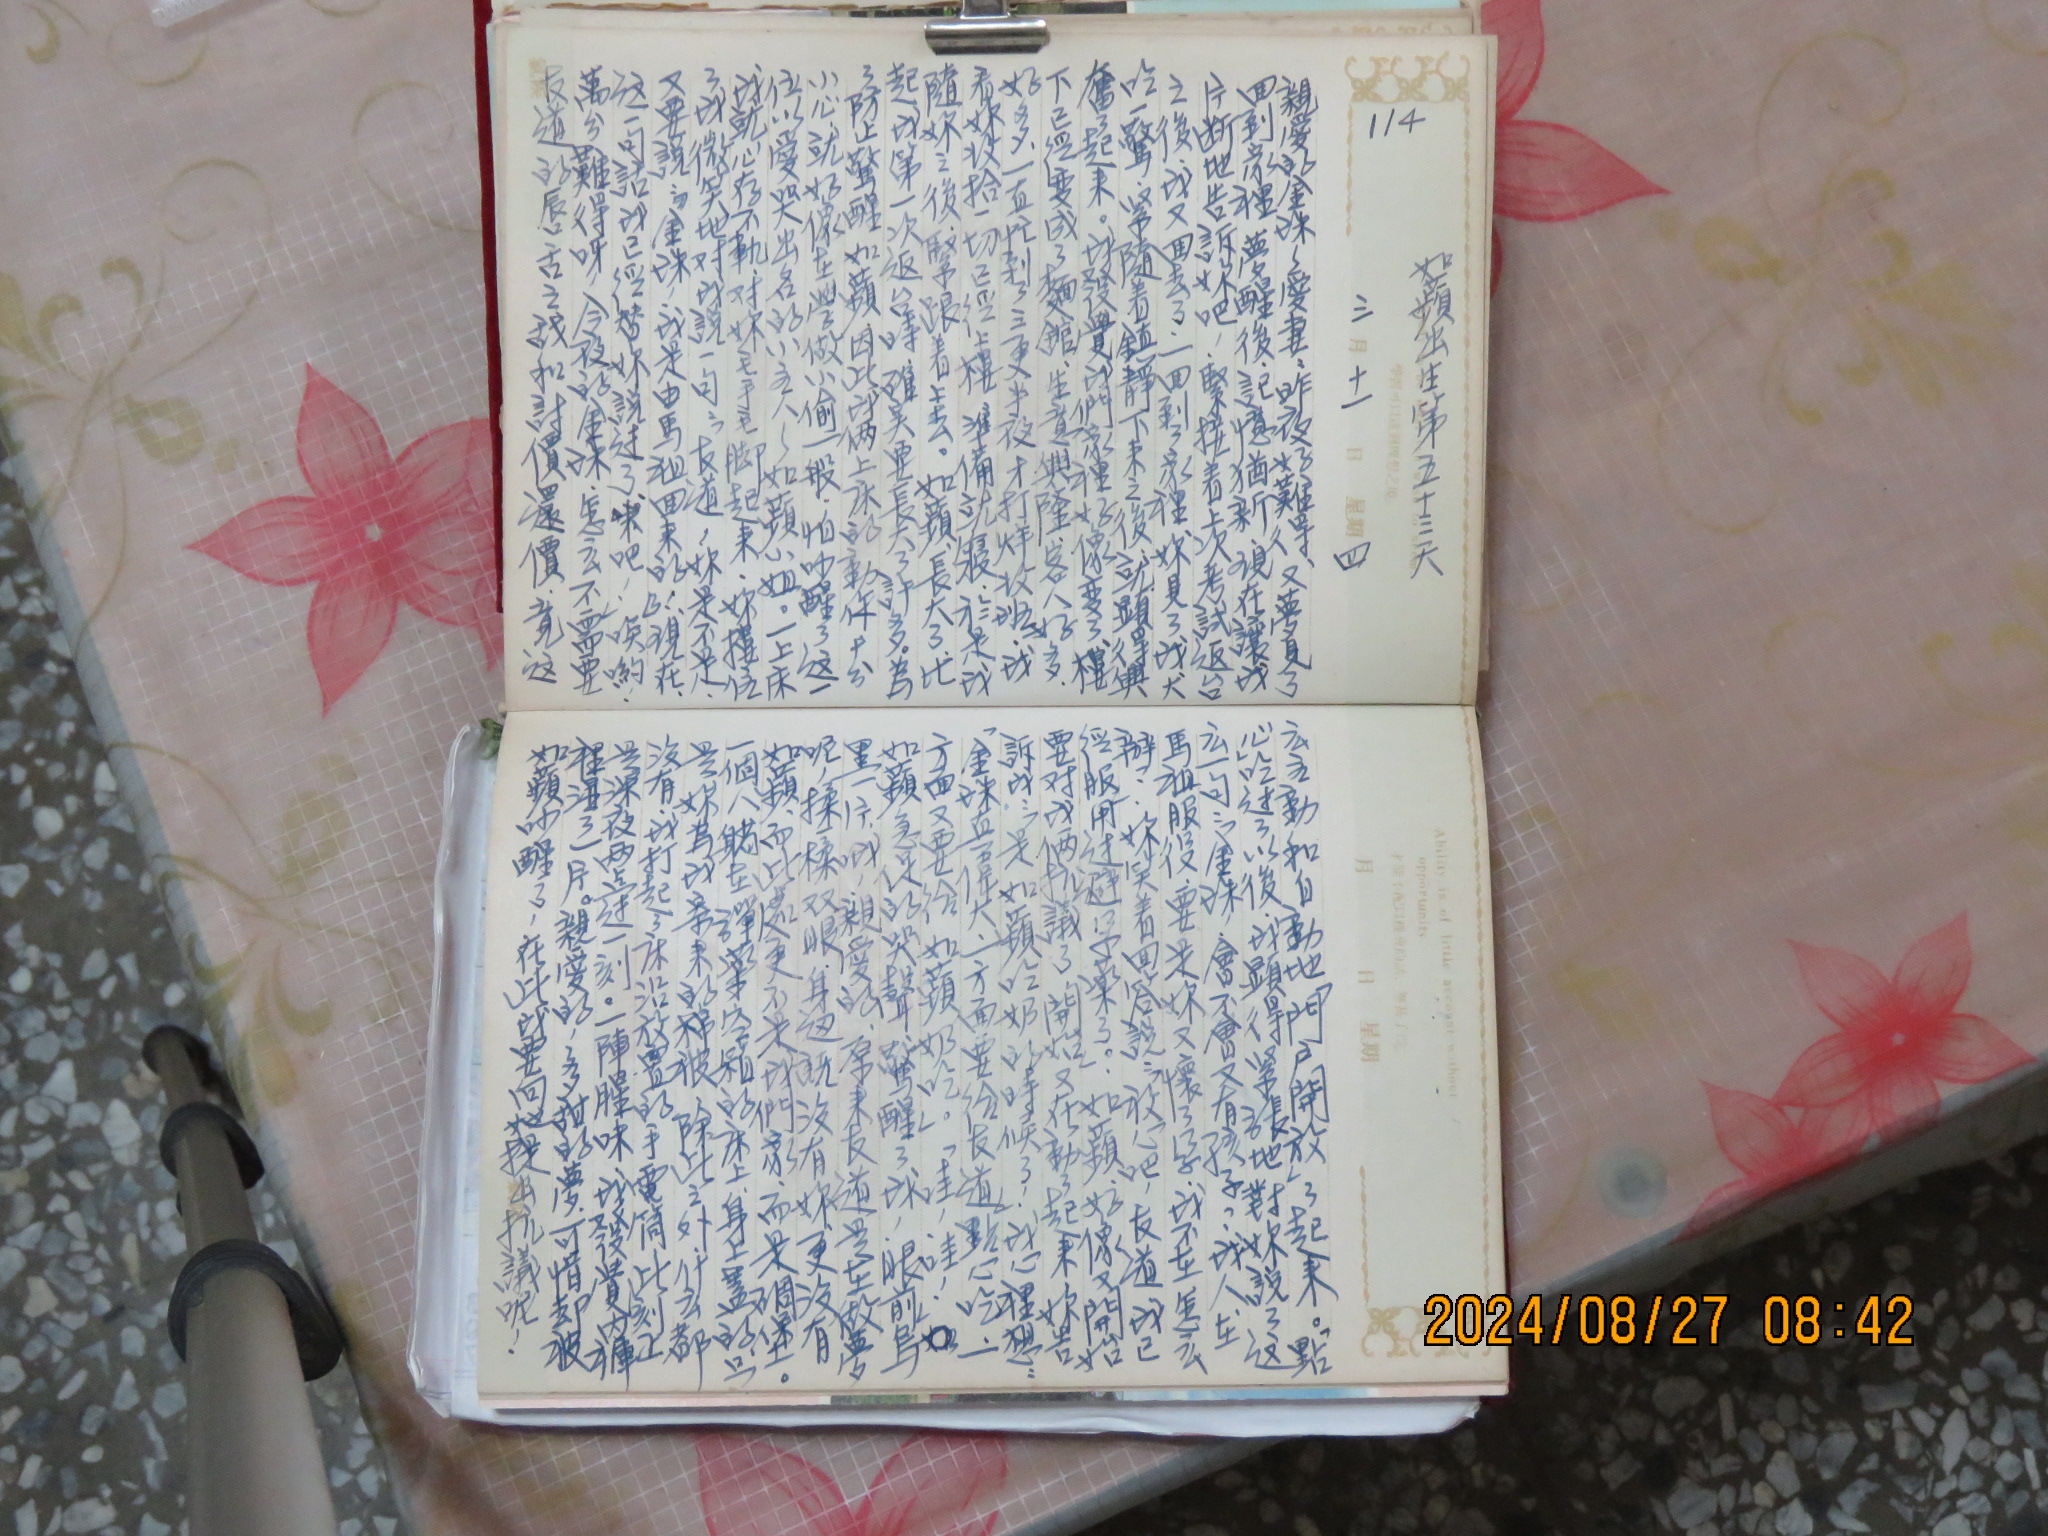 114
如蘋出生第五十三天
三月十一日 星期四
親愛的金珠、愛妻：昨夜好難得，又夢見了
回到家裡，夢醒後，記憶猶新，現在讓我
片斷地告訴妳吧，緊接着上次考試返台
之後，我又回去了，一回到了家裡，妳見了我大
吃一驚，緊隨着鎮靜下來之後，就顯得興
奮了起來。我發覺我們家裡好像變了，樓
下已經變成了麵館，生意興隆，客人好多，
好多，一直忙到了三更半夜才打烊收班，我
看妳收拾一切已經上樓，準備就寢，於是我
隨妳之後，緊跟着上去。如蘋，長大了，比
起我第一次返台時，確實要長大了許多。為
了防止驚醒如蘋，因此我倆上床的動作十分
小心，就好像在學做小偷一般，怕吵醒了這一
位以愛哭出名的小主人〜如蘋小姐。一上床
我就心存不軌，對妳毛手毛腳起來，妳擋住
了我，微笑地對我說一句：友道，妳是不是，
又要說：金珠，我是由馬祖回來的！現在，
這一句話我已經替妳說過了，來吧，唉喲！
萬分難得呀，今夜的金珠，怎么不需要
友道的唇舌之戰和討價還價，竟這
么主動和自動地「門戶開放」了起來。「點
心吃过了」以後，我顯得緊張地對妳說了這
么一句：金珠，會不會又有孩子？我人在
馬祖服役，要是妳又懷了孕，我不在怎么
辦？妳笑着回答說：放心吧，友道，我已
經服用过避孕藥了。如蘋，好像又開始
要对我倆抗議了，開始又在動了起來，妳告
訴我：是如蘋吃奶的時候了！我心裡想：
「金珠真偉大，一方面要給友道點心吃，一
方面又要給如蘋奶吃。」「哇，哇，哇！」如
如蘋急促的哭聲，驚醒了我，眼前烏
黑一片，哦，親愛的，原來友道是在做夢
呢，揉一揉双眼，身边既沒有妳，更沒有
如蘋，而此處更不是我們家，而是碉堡。
一個人躺在彈藥空箱的床上，身上蓋的只
是妳為我寄來的棉被，除此之外，什么都
沒有，我打起了床沿放置的手電筒，此刻正
是深夜两點过一刻。一陣腥味，我發覺內褲
裡濕了一片。親愛的，多甜的夢，可惜却被
如蘋吵醒了，在此我要向她提出抗議呢！
Ability is of little account without
opportunity.
月 日 星期
2024/08/27 08:42